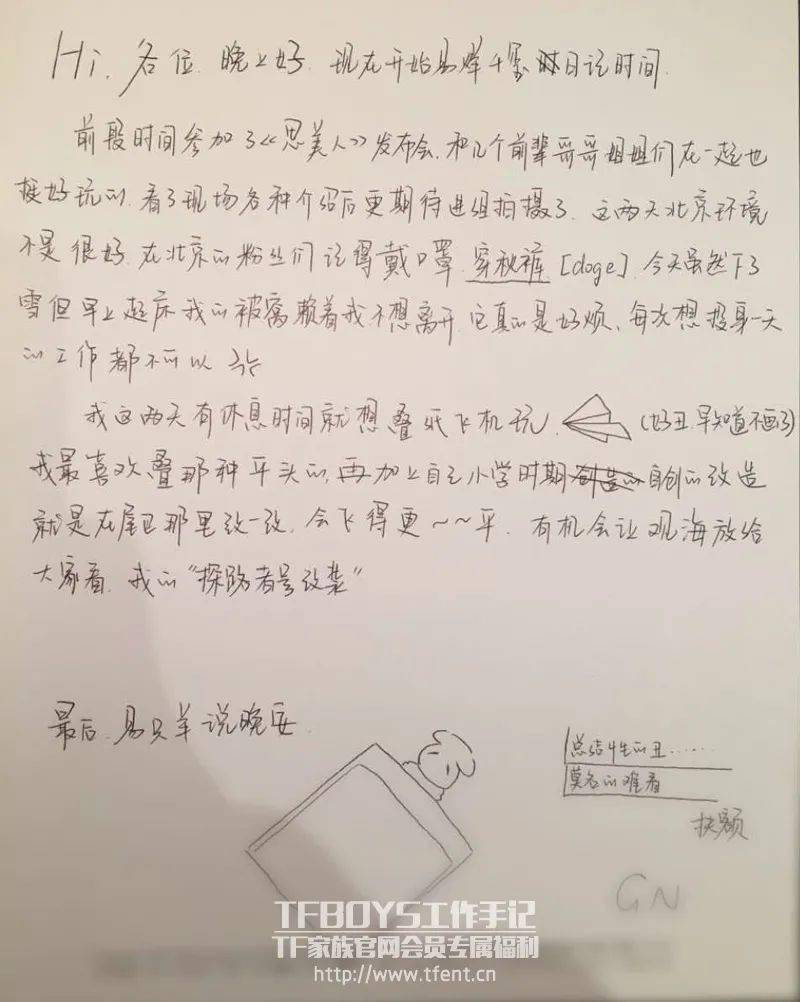 Hi. 各位. 晚上好. 现在开始易烊千玺日记时间.
前段时间参加了《思美人》发布会, 和几个前辈哥哥姐姐们在一起也
挺好玩的. 看了现场各种介绍后更期待进组拍摄了. 这两天北京环境
不是很好. 在北京的粉丝们记得戴口罩. 穿秋裤 [doge]. 今天虽然下了
雪但早上起床我的被窝赖着我不想离开. 它真的是好烦、每次想投身一天
的工作都不可以
我这两天有休息时间就想叠纸飞机玩. (好丑.早知道不画了)
我最喜欢叠那种平头的. 再加上自己小学时期自创的改造
就是在尾巴那里改一改. 会飞得更~~平. 有机会让观海放给
大家看. 我的"探路者号改装"
最后. 易只羊说晚安.
总结性的丑......
莫名的难看
扶额
GN
TFBOYS工作手记
TF家族官网会员专属福利
http://www.tfent.cn